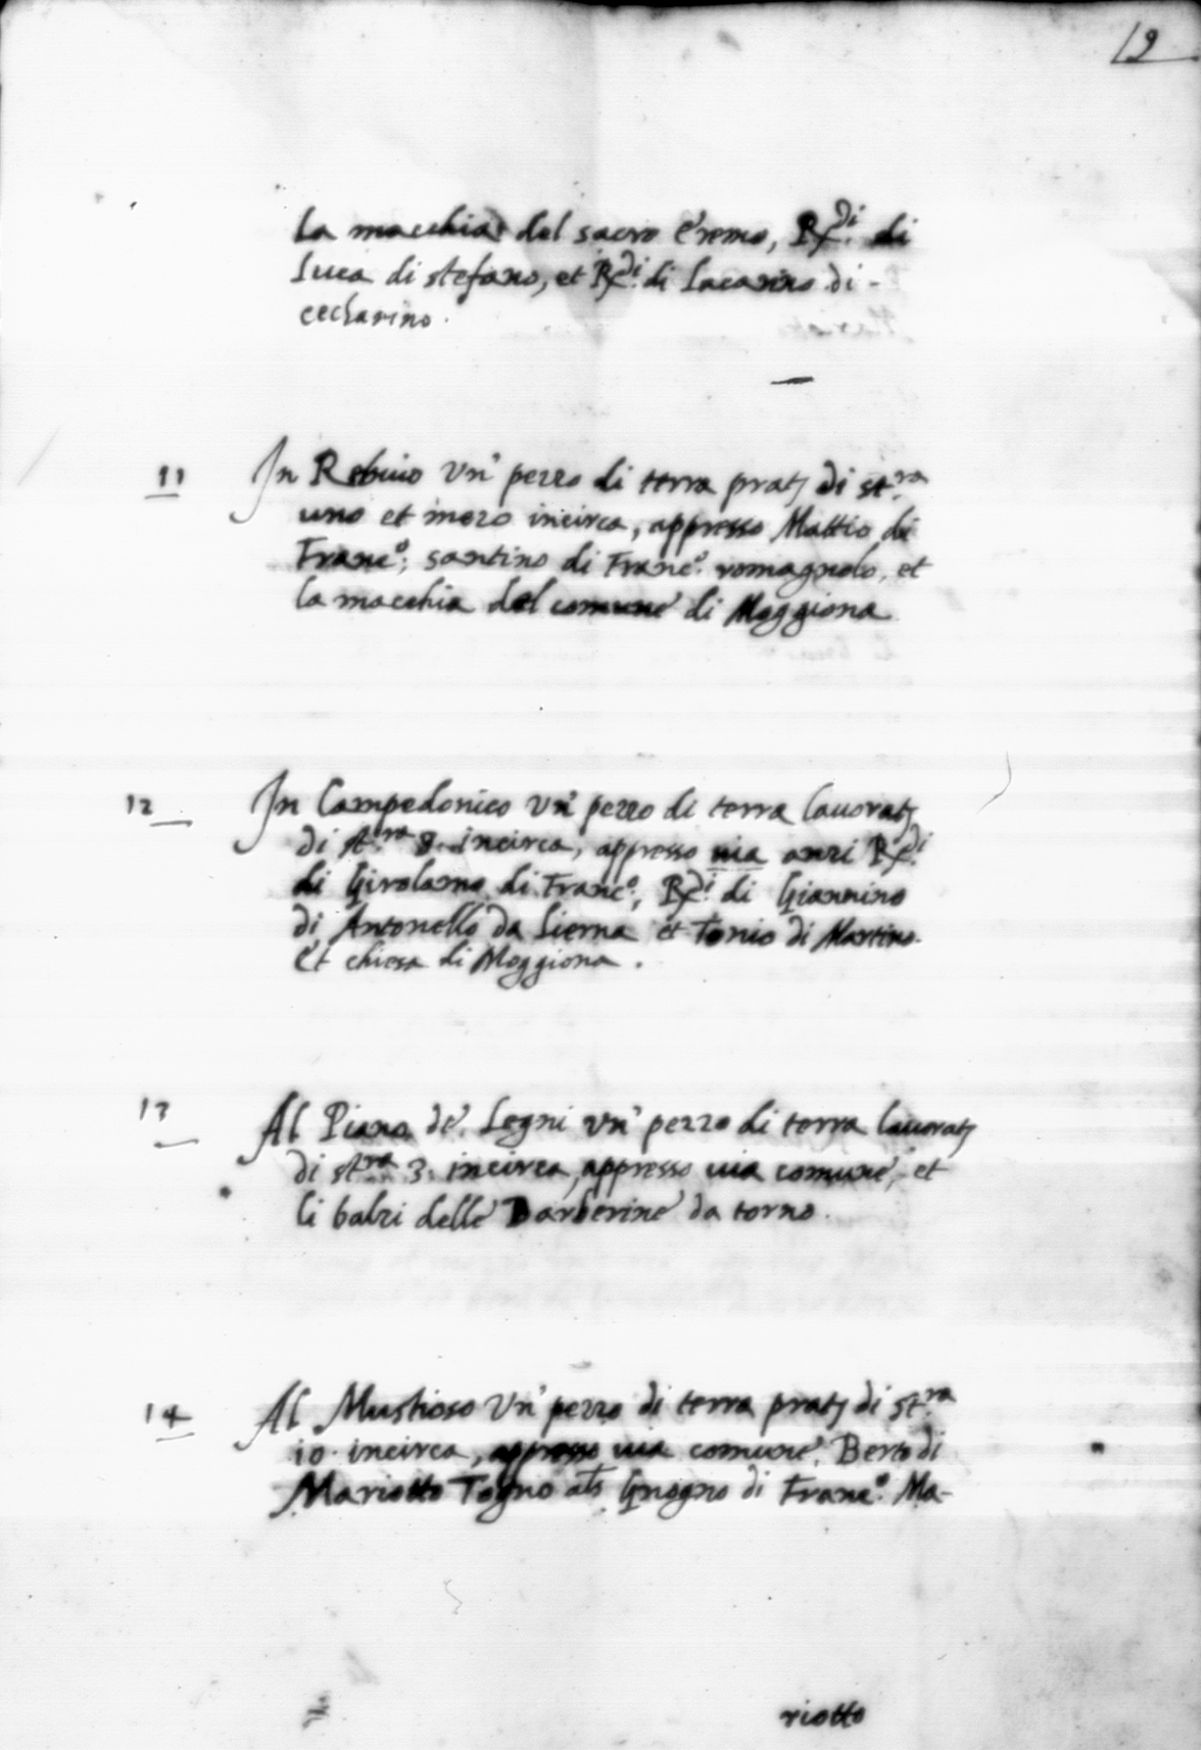 19
La macchia del sacro Eremo, R.di di
Luca di stefano, et R.di di Lacarino di -
ceccharino.
11 In Rebuio Un' pezzo di terra prat. di st.ra
uno et mezo incirca, appresso Mattio di
Franc.o; santino di Franc.o romagnolo, et
la macchia del comune di Moggiona
12 In Campedonico Un' pezzo di terra lauorat.
di st.ra 8. incirca, appresso uia anzi R.di
di Girolamo di Franc.o, R.di di Giannino
di Antonello da Lierna et Tonio di Martino.
Et chiesa di Moggiona.
13 Al Piano de' Legni Un' pezzo di terra lauorat.
di st.ra 3. incirca, appresso uia comune, et
li balzi delle Barberine da torno.
14 Al Mustioso Un' pezzo di terra prat. di st.ra
10. incirca, appresso uia comune, Berto di
Mariotto Togno als Gnogno di Franc.o Ma-
riotto